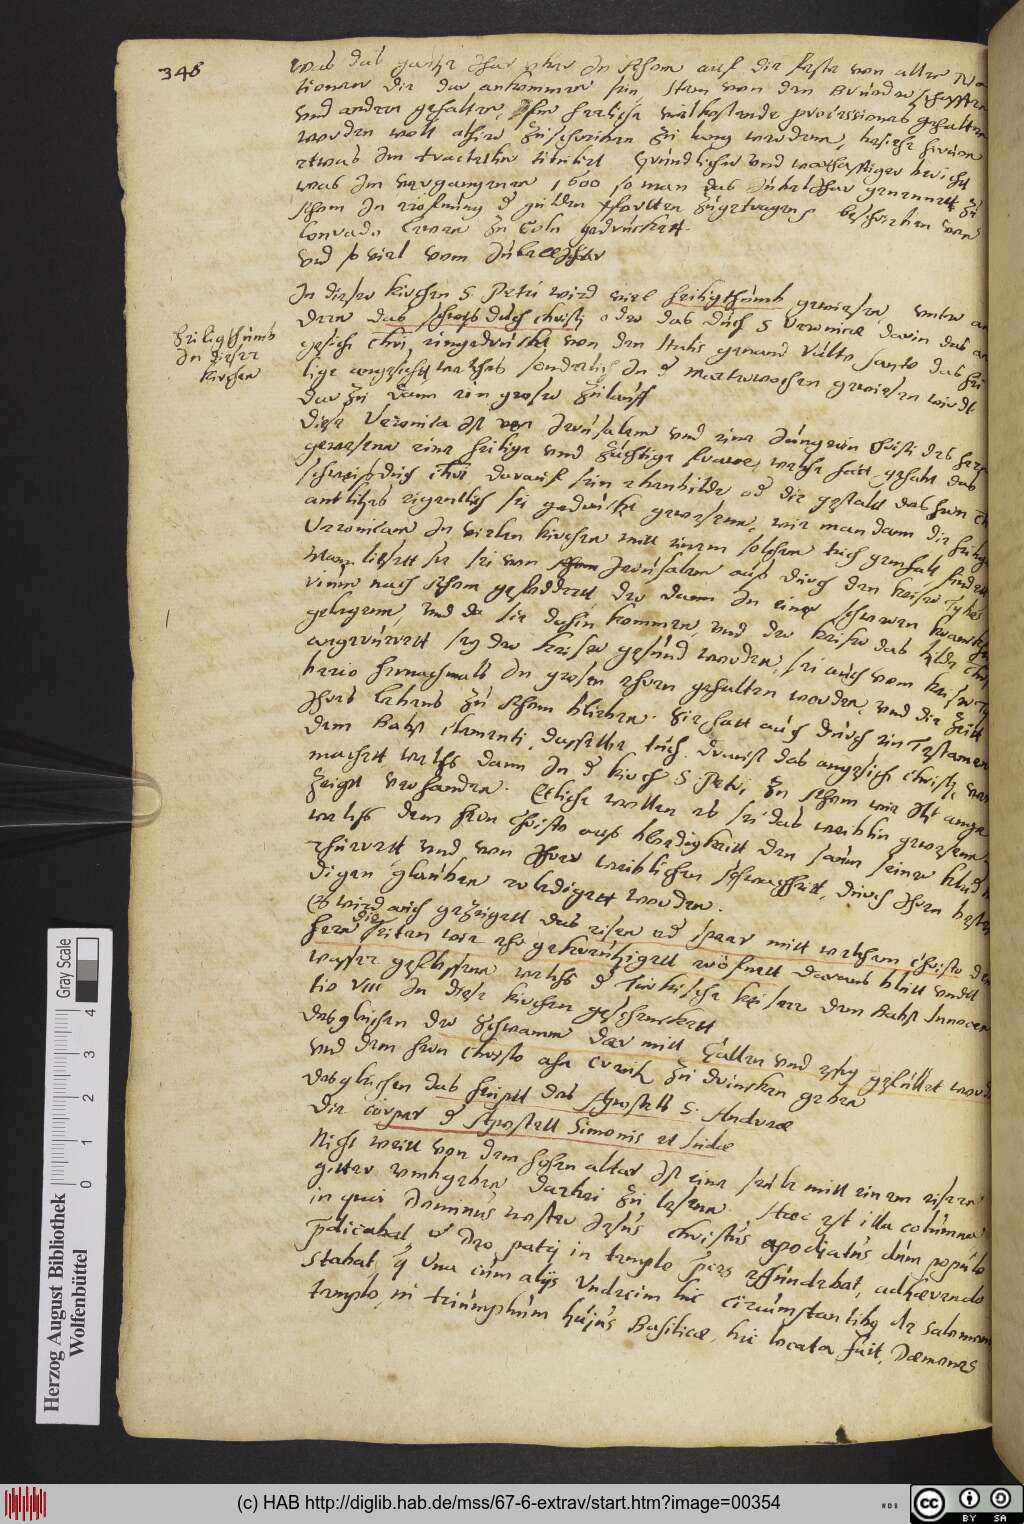 348
was das gantze Jhar uber zu Rhom auf die feste von allen Na
tionen die da ankommen sein, Item von den Brüderschafften
und andern gehalten, Jhn herlich processiones gehalten
worden wolt alhie zuschreiben zu lang werden, besiehe hievon
etwas Im tractatlin titulirt Gründlicher und warhafftiger bericht
was Im vergangenen 1600 so man das Jubel Jhar genennett zu
Rhom In eröfnung d gulden Pfortten zugetragen, beschrieben von
Conrado zu Cöln gedruckett.
und so viel vom Jubell Jhar
In dieser kirchen S. Petri wird viel heiligthumb gewiesen, unter an
dern das schweis duch Christi oder das duch S Veronicæ darin das an
gesich Chri eingedruckt von den Italis genand Vulto santo das hei
lige angesicht welches sonderlich In d marterwochen gewiesen wirdt
dar zu dann ein groser zulauff
Heiligthumb
In dieser
kirchen
Diese Veronica Ist von Jerusalem und eine Jungerin Christi des hern
gewesenn eine heilige und züchtige frauwe, welche hatt gehabt das
schweisduch Chri darauf sein ebenbilde od die gestald des hern Ch
antlitzes eigentlich sei gedruckt gewesenn, wie man dann die heilige
Veronicam In vielen kirchen mitt einem solchen tuch gemhalt findett
Man liesett sie sei von Jerusalem aus durch den keiser Tybe
rium nach Rhom gefoddertt, der dann In einer schweren kranckheit
gelegenn, und da sie dahin kommen, und der keiser das bilde Chri
angerurett sey der keiser gesund worden, sei auch vom keiser Ty
berio hernachmals In grosen ehren gehalten worden, und die zeitt
Jhres lebens zu Rhom blieben. Sie hatt auch durch ein Testament
dem Babst Clementi, dasselbe tuch, darauf das angesich Christi ver
machett welchs dann In d kirch S. Petri zu Rhom wie Itzt ange
zeigt verhanden. Etliche wollen es sei das weiblin gewesenn
welchs dem hern Christo aus blodigkeitt den saum seiner kleid
ehrurett und von Jhrer weiblichen schwachheitt, durch Jhren besten
digen glauben erledigett worden.
Es wird auch gezeigett das eisen od spear mitt welchem Christo dem
hern die seiten wie ehr gekreutzigett eröfnett daraus blutt undt
wasser geflossenn welchs d Türkische keiser dem Babst Innocen
tio VIII In diese kirchen geschenckett
Desgleichen der schwamm dar mitt Gallen und essig gefullet word
und dem hern Christo ahn Creutz zu drincken geben
Desgleichen das heupt des Apostels S. Andreæ
Die corper d Apostell Simonis et Judæ
Nicht weitt von dem hohen altar Ist eine seule mitt einem eisern
gitter umbgeben darbei zu lesenn. Haec est illa columna
in qua Dominus noster Jesus Christus apodiatus dum populo
prædicabat et Deo patri in templo preces effundebat, adhærendo
stabat, quæ una cum aliis undecim hic circumstantibus de Salomonis
templo in triumphum hujus Basilicæ, hic locata fuit, Dæmones
Gray Scale
0 1 2 3 4
Herzog August Bibliothek
Wolfenbüttel
(c) HAB http://diglib.hab.de/mss/67-6-extrav/start.htm?image=00354
WDB
CC BY SA